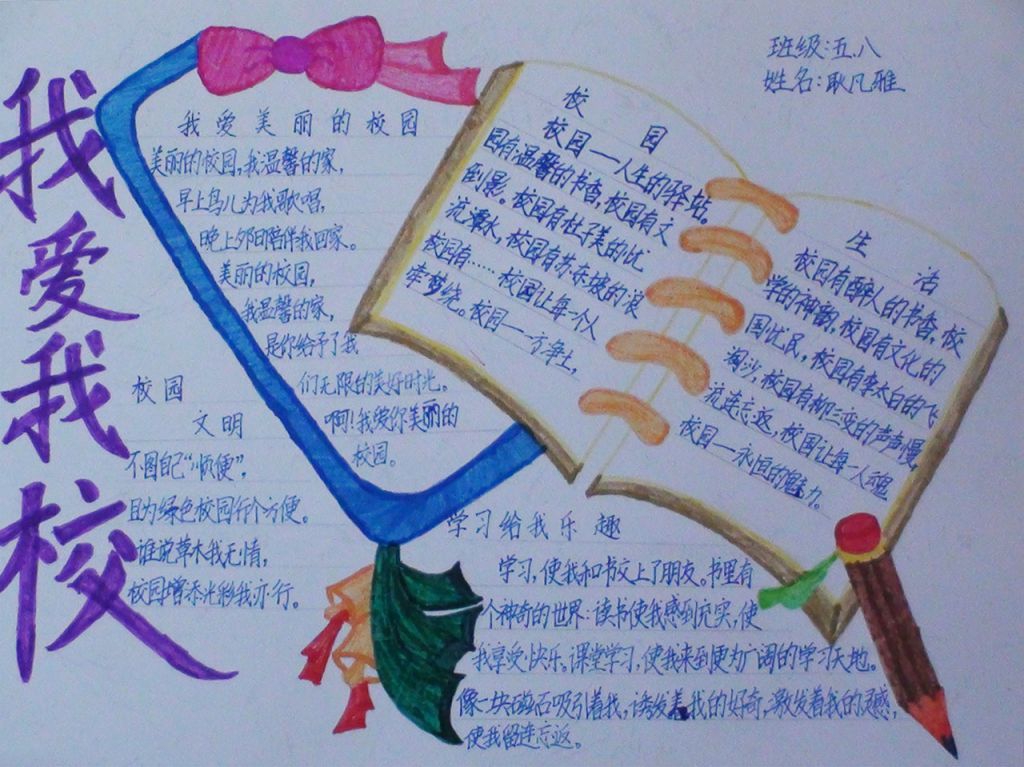 我爱我校
班级:五.八
姓名:耿凡雅
我爱美丽的校园
美丽的校园,我温馨的家,
早上鸟儿为我歌唱,
晚上夕阳陪伴我回家。
美丽的校园,
我温馨的家,
是你给予了我
们无限的美好时光。
啊!我爱你美丽的
校园。
校园
文明
不图自己“顺便”,
且为绿色校园行个方便。
谁说草木我无情,
校园增添光彩我亦行。
校园
校园——人生的驿站,
园有温馨的书香,校园有文
倒影。校园有杜子美的忧
流潭水,校园有苏东坡的浪
校园有……校园让每一个人
牵梦绕。校园——方净土,
生活
校园有醉人的书香,校
学的神韵,校园有文化的
国忧民,校园有李太白的飞
淘沙,校园有柳三变的声声慢,
流连忘返,校园让每一人魂
校园——永恒的魅力。
学习给我乐趣
学习,使我和书交上了朋友。书里有
个神奇的世界:读书使我感到充实,使
我享受快乐。课堂学习,使我来到更为广阔的学习天地。
像一块磁石吸引着我,诱发着我的好奇,激发着我的灵感,
使我留连忘返。